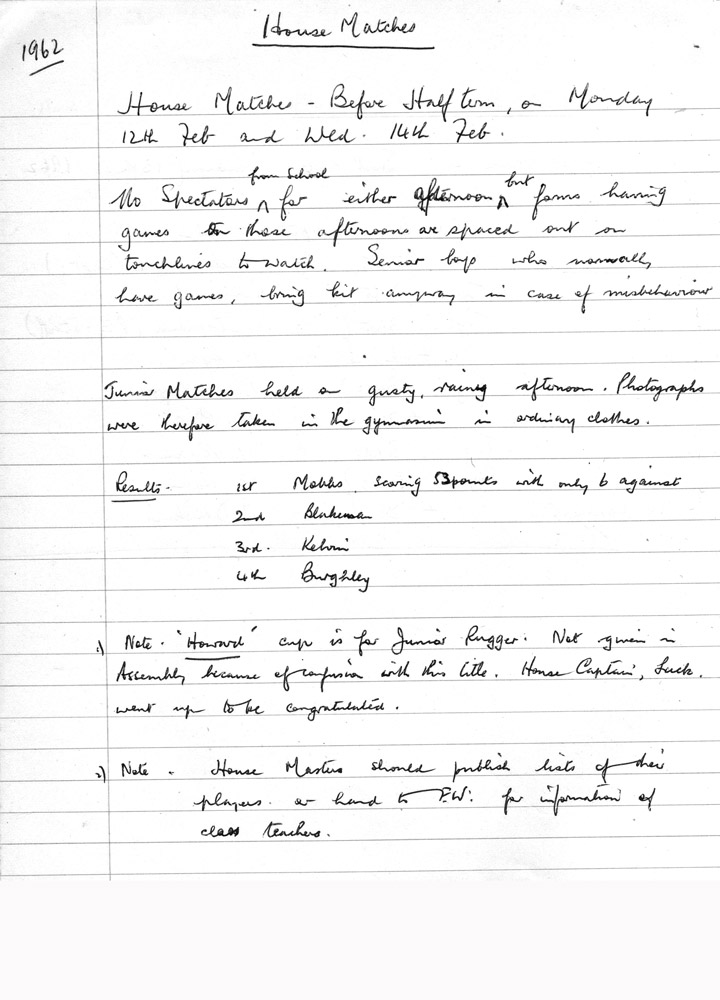 1962
House Matches
House Matches - Before Half term, on Monday
12th Feb and Wed. 14th Feb.
No Spectators from School for either afternoon, but forms having
games on those afternoons are spaced out on
touchlines to watch. Senior boys who normally
have games, bring kit anyway in case of misbehaviour
Junior Matches held on gusty, rainy afternoon. Photographs
were therefore taken in the gymnasium in ordinary clothes.
Results - 1st Mobbs. Scoring 53 points with only 6 against
2nd Blakeman
3rd. Kelvin
4th Burghley
1) Note. "Howard" cup is for Junior Rugger. Not given in
Assembly because of confusion with this title. House Captain, Luck.
went up to be congratulated.
2) Note - House Masters should publish lists of their
players. or hand to F.W. for information of
class teachers.